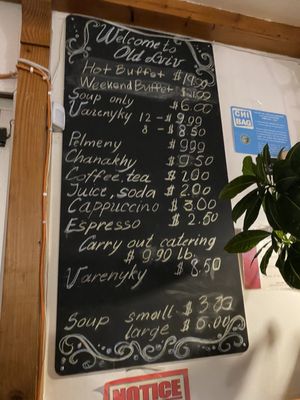 Welcome to
Old Lviv
Hot Buffet $19.50
Weekend Buffet
Soup only $6.00
Varenyky 12 - $9.00
8 - $8.50
Pelmeny $9.99
Chanakhy $9.50
Coffee, tea $2.00
Juice, soda $2.00
Cappuccino $3.00
Espresso $2.50
Carry out catering
$9.90 lb.
Varenyky $8.50
Soup small $3.20
large $6.00
CHI
BAG
NOTICE